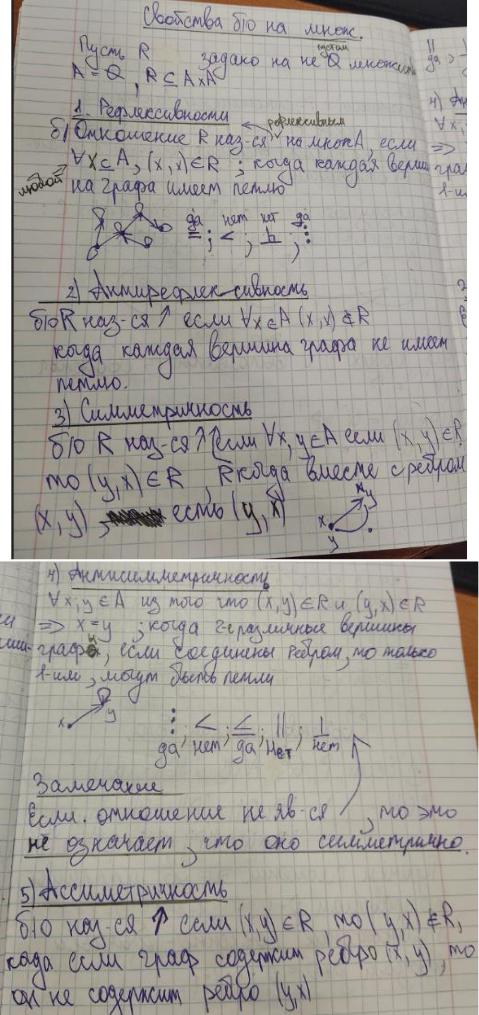 Свойства б/о на множ.
Пусть R задано на не пустом множестве
A = Q, R ⊆ A×A
1. Рефлексивности
рефлексивным
б/Отношение R наз-ся на множ A, если
∀x ⊆ A, (x, x) ∈ R; когда каждая верши
любой
на графа имеет петлю
да нет нет да
= ; < ; ⊥ ; ⋮
2) Антирефлек-сивность
б/о R наз-ся ↑ если ∀x ∈ A (x, x) ∉ R
когда каждая вершина графа не имеет
петлю.
3) Симметричность
б/о R наз-ся ↑ если ∀x, y ∈ A если (x, y) ∈ R
то (y, x) ∈ R, R когда вместе с ребром
(x, y), есть (y, x)
x y
y
4) Антисимметричность
∀x, y ∈ A из того что (x, y) ∈ R и (y, x) ∈ R
=> x = y ; когда 2 различные вершины
графа, если соединены ребром, то только
1-им, могут быть петли
x y
⋮ ; < ; ≤ ; || ; ⊥
да нет да нет нет
Замечание
Если отношение не яв-ся , то это
не означает, что оно симметрично.
5) Ассиметричность
б/о наз-ся ↑ если (x, y) ∈ R, то (y, x) ∉ R,
када если граф содержит ребро (x, y), то
он не содержит ребро (y, x)